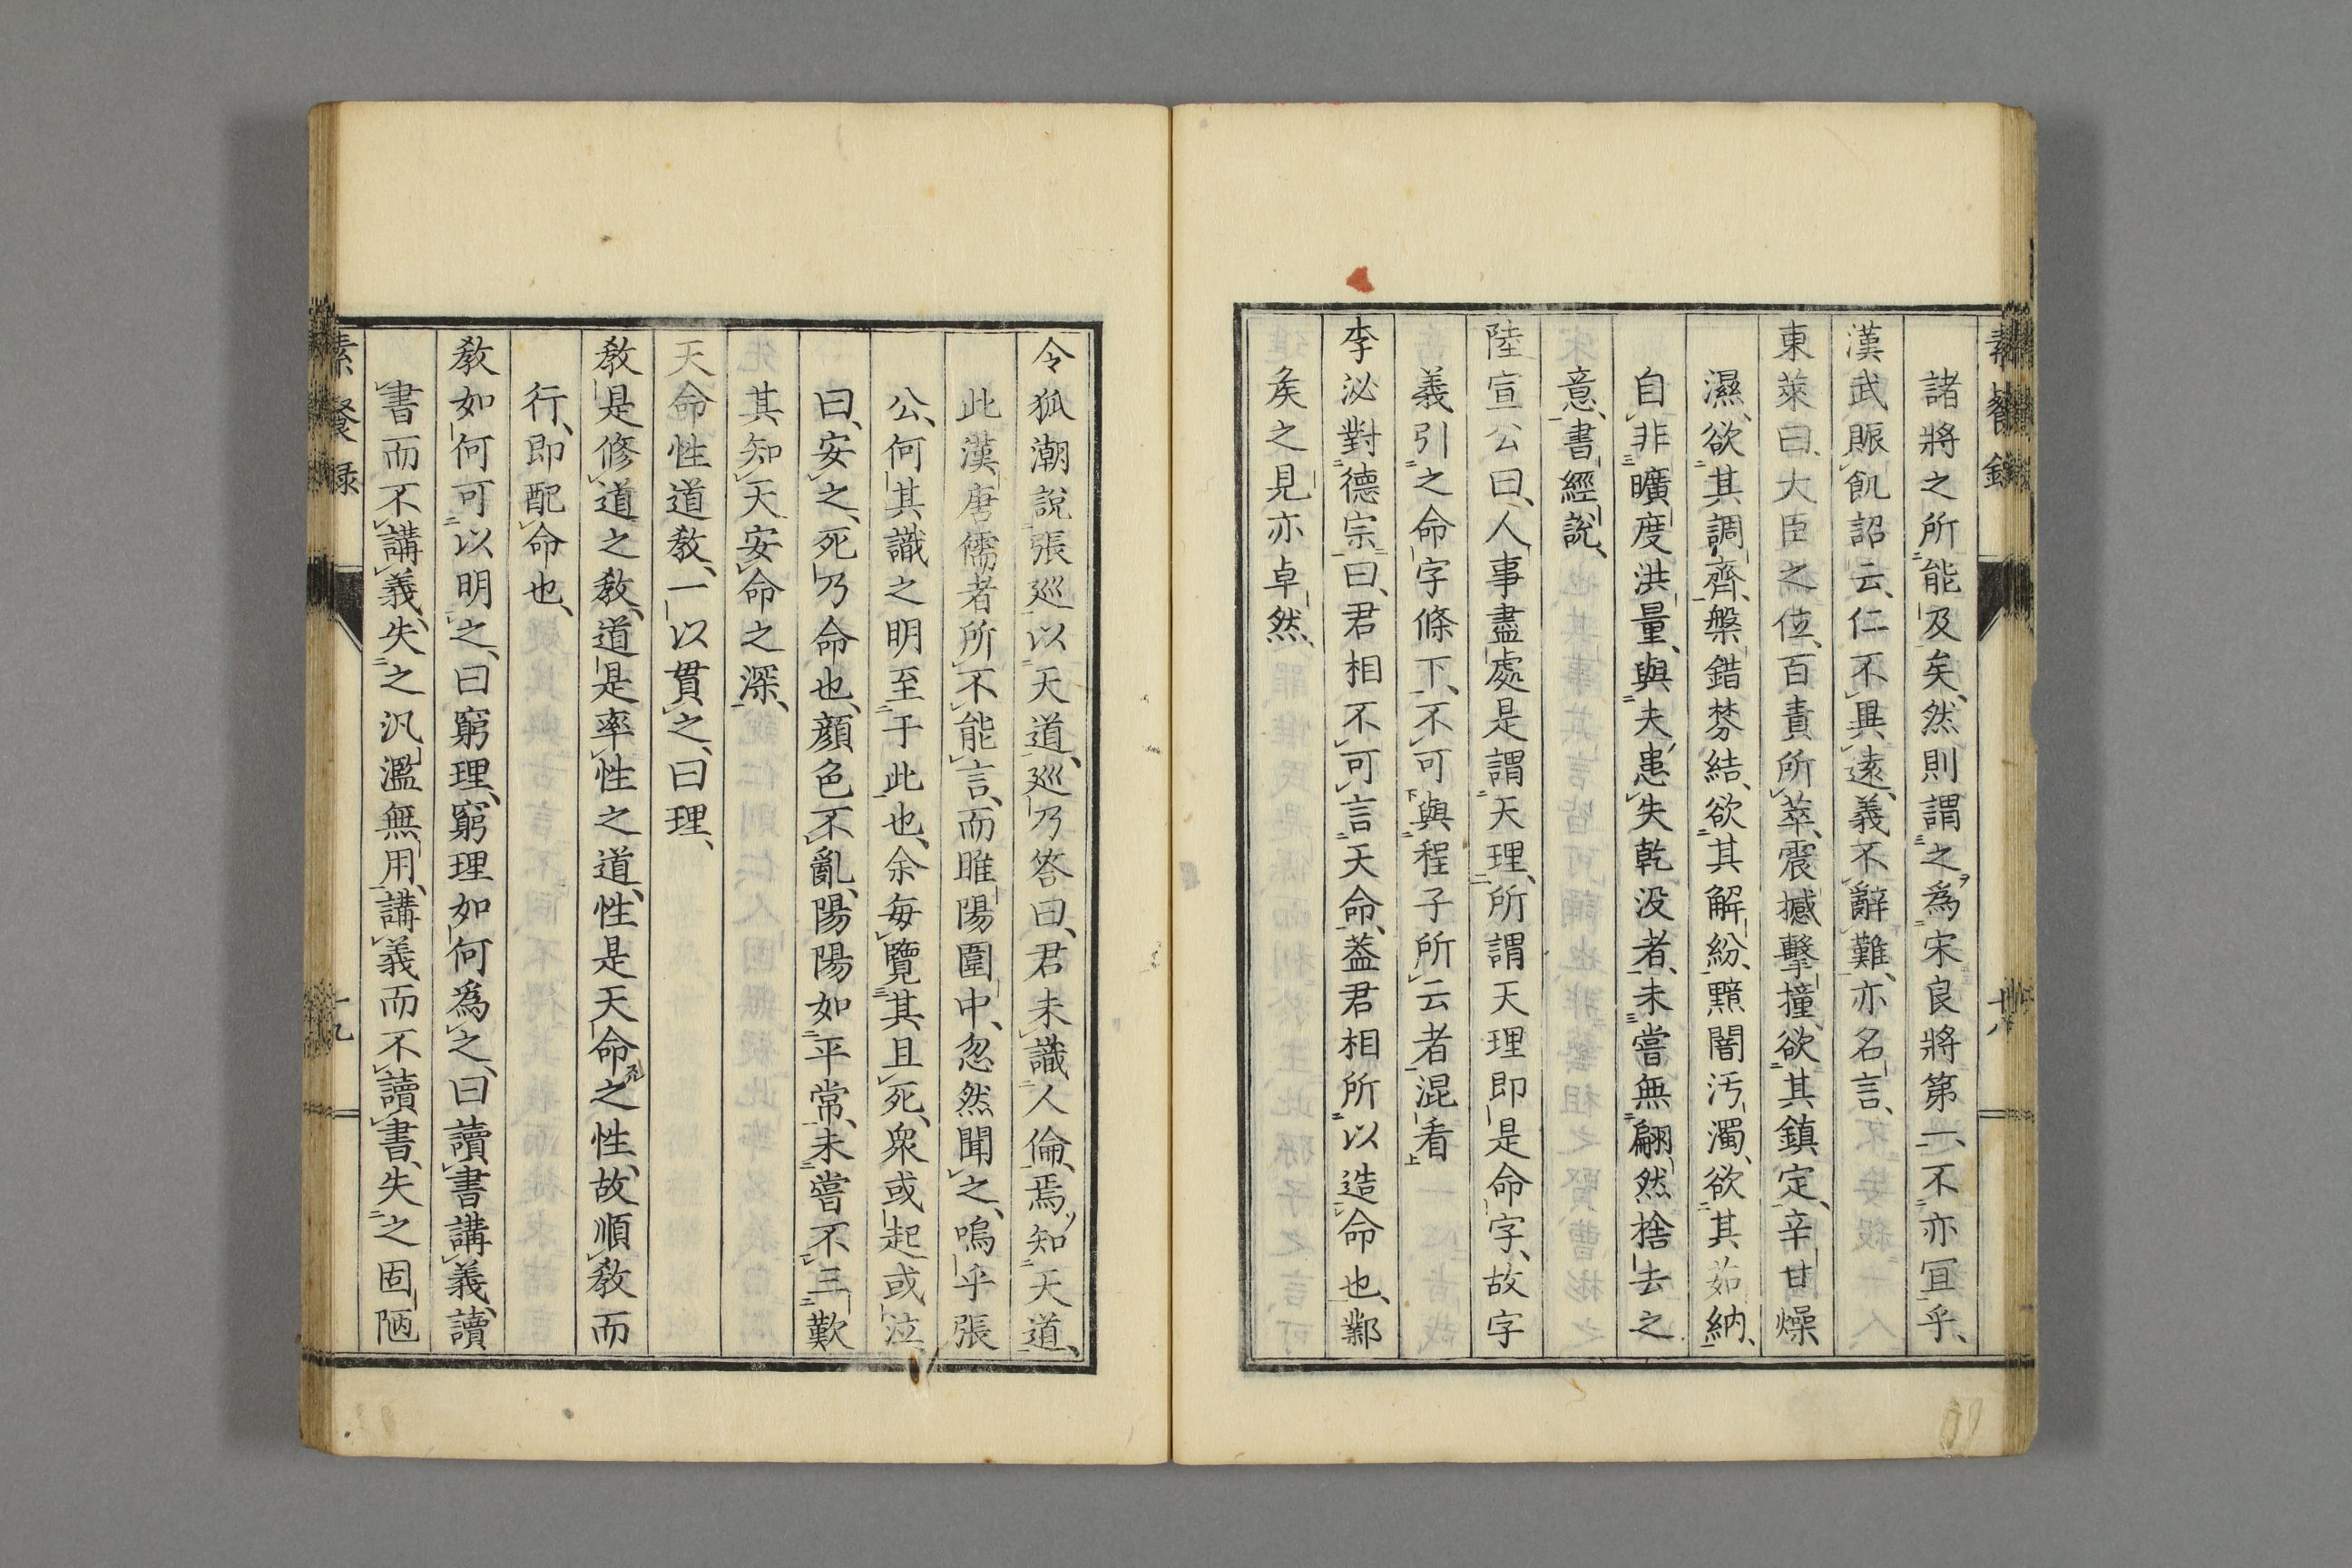 諸將之所能及矣、然則謂之爲宋良將第一、不亦冝乎、
漢武賑飢詔云、仁不異遠、義不辭難、亦名言、
東萊曰、大臣之位、百責所萃、震撼擊撞、欲其鎮定、辛甘燥
濕、欲其調齊、槃錯棼結、欲其解紛、黯闇汚濁、欲其茹納、
自非曠度洪量、與夫患失乾没者、未嘗無翩然捨去之
意、書經說、
陸宣公曰、人事盡處是謂天理、所謂天理即是命字、故字
義引之命字條下、不可與程子所云者混看
李泌對德宗曰、君相不可言天命、葢君相所以造命也、鄴
矦之見亦卓然、
令狐潮說張巡以天道、巡乃答曰、君未識人倫、焉知天道、
此漢唐儒者所不能言、而睢陽圍中、忽然聞之、嗚乎張
公、何其識之明至于此也、余每覽其且死、衆或起或泣
曰、安之、死乃命也、顔色不亂、陽陽如平常、未嘗不三歎
其知天安命之深、
天命性道敎、一以貫之、曰理、
敎是修道之敎、道是率性之道、性是天命之性、故順敎而
行、即配命也、
敎如何可以明之、曰窮理、窮理如何爲之、曰讀書講義、讀
書而不講義、失之汎濫無用、講義而不讀書、失之固陋
素餐録
十九